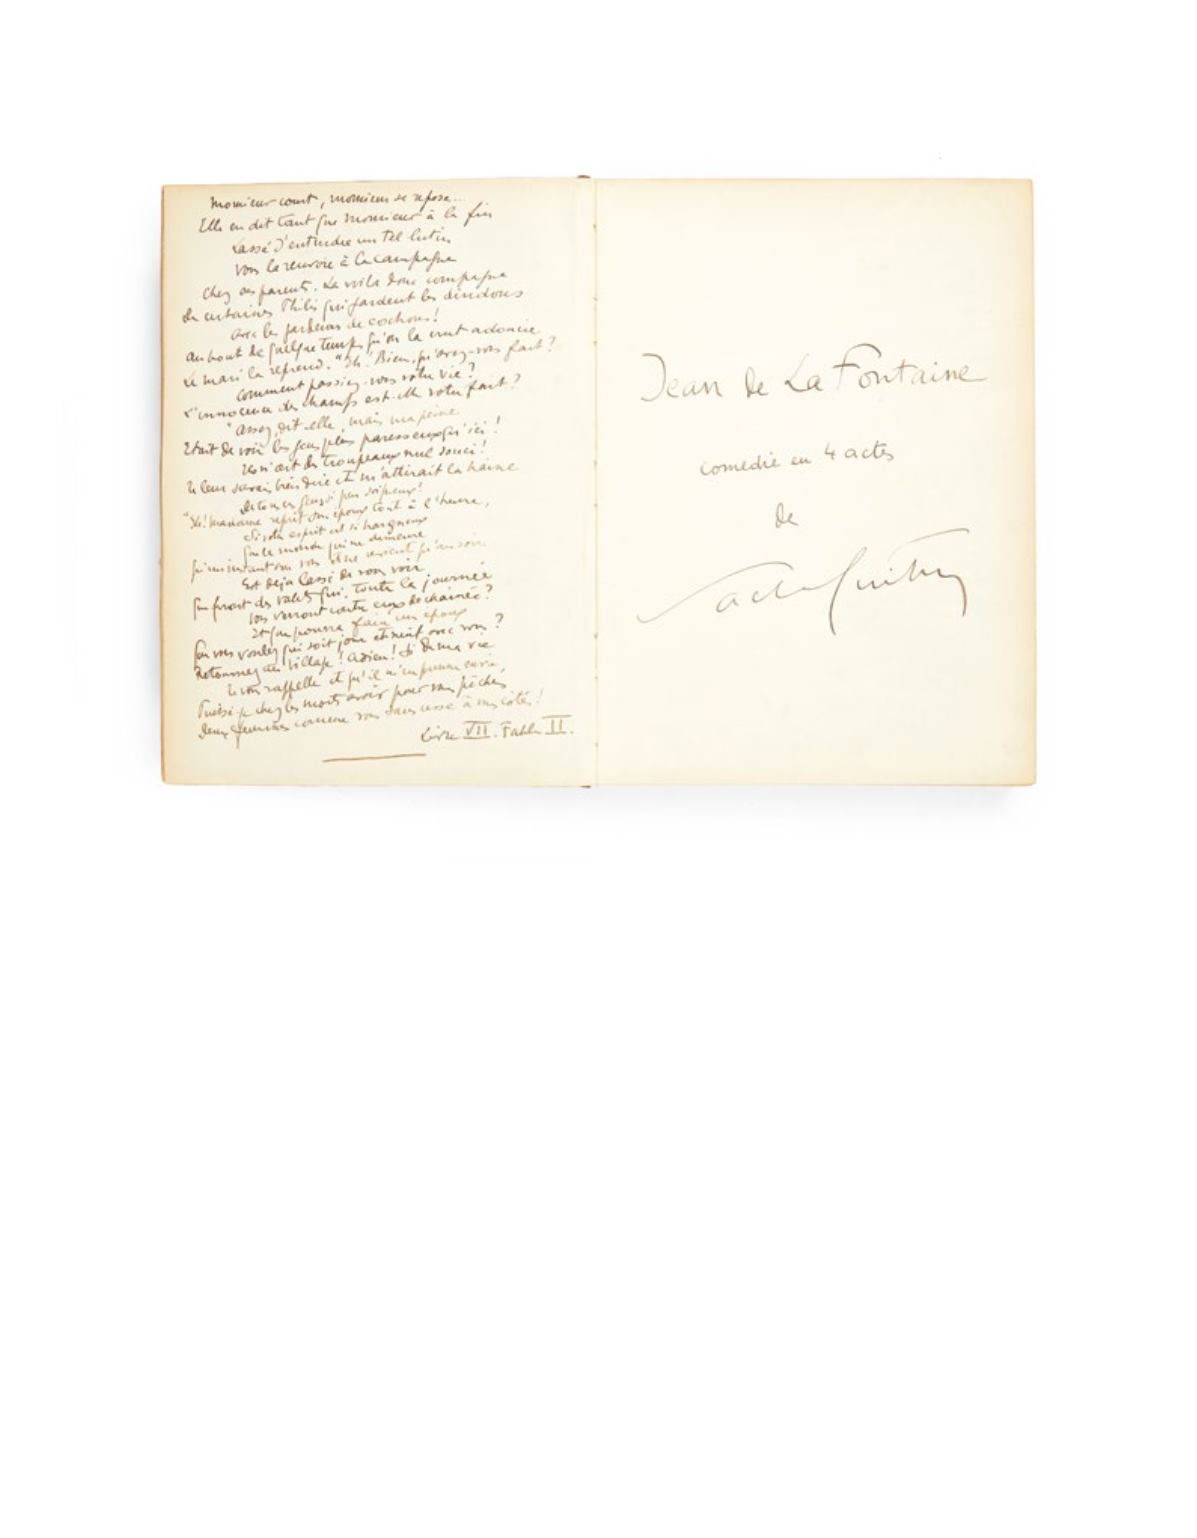 Monsieur court, monsieur se repose...
Elle en dit tant que monsieur à la fin
Lassé d'entendre un tel lutin
Vous la renvoie à la campagne
Chez ses parents. La voilà donc compagne
De certaines Philis qui gardent les dindons
Avec les gardeurs de cochons!
Au bout de quelque temps qu'on la crut adoucie
Le mari la reprend. "Eh! Bien, qu'avez-vous fait?
Comment passiez-vous votre vie?
L'innocence des champs est-elle votre fait?
"Assez, dit-elle, mais ma peine
Etait de voir les gens plus paresseux qu'ici!
Ils n'ont des troupeaux nul souci!
Je leur savais bien dire et m'attirait la haine
De tous ces gens si peu soigneux!
"Eh! Madame reprit son époux tout à l'heure,
Si votre esprit est si hargneux
Que le monde qui ne demeure
Qu'un instant avec vous et ne revient qu'au soir
Est déjà lassé de vous voir
Que feront des valets qui, toute la journée
Vous verront contre eux déchainée?
Et que pourra faire un époux
Que vous voulez qui soit jour et nuit avec vous?
Retournez au village! Adieu! Si de ma vie
Je vous rappelle et qu'il m'en prenne envie,
Puissé-je chez les morts avoir pour mes péchés
Deux femmes comme vous sans cesse à mes côtés!
Livre VII. Fable II.
Jean de La Fontaine
comédie en 4 actes
de
Sacha Guitry